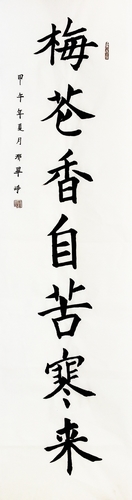 梅花香自苦寒来
甲午年夏月